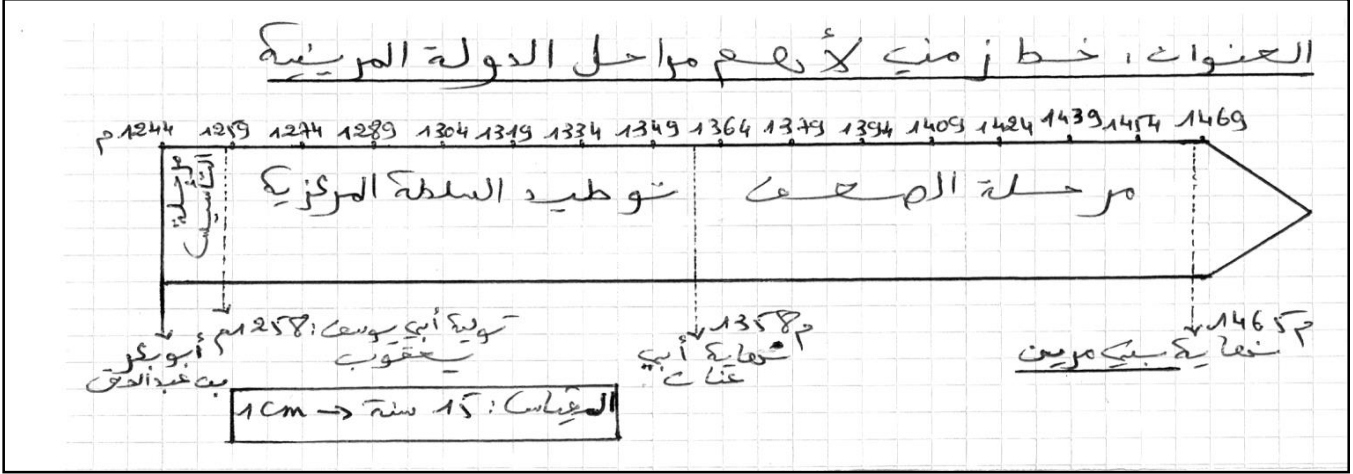 العنوان: خط زمني لأهم مراحل الدولة المرينية
1244م 1259 1274 1289 1304 1319 1334 1349 1364 1379 1394 1409 1424 1439 1454 1469
مرحلة
التأسيس
توطيد السلطة المركزية
مرحلة الضعف
أبو بكر
بن عبد الحق
1258م: تولية أبي يوسف
يعقوب
1358م
نهاية أبي
عنان
1465م
نهاية بني مرين
المقياس: 15 سنة → 1cm